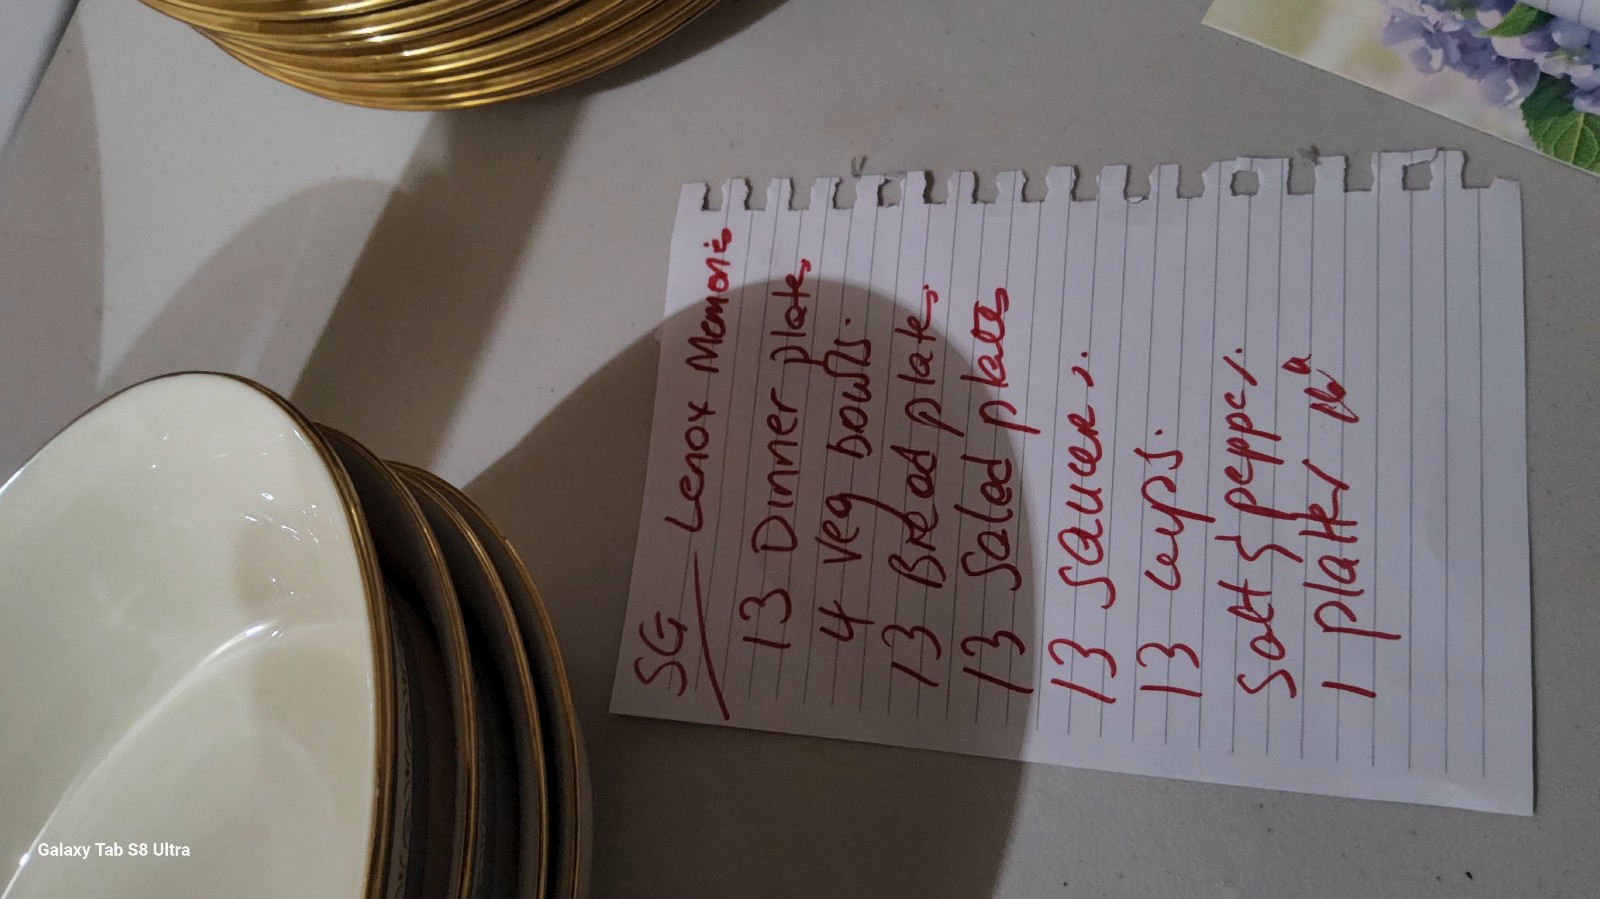 SG
Lenox Memorie
13 Dinner plates
4 veg bowls.
13 Bread plates
13 Salad plates
13 saucers.
13 cups.
Salt & pepper.
1 platter 16"
Galaxy Tab S8 Ultra